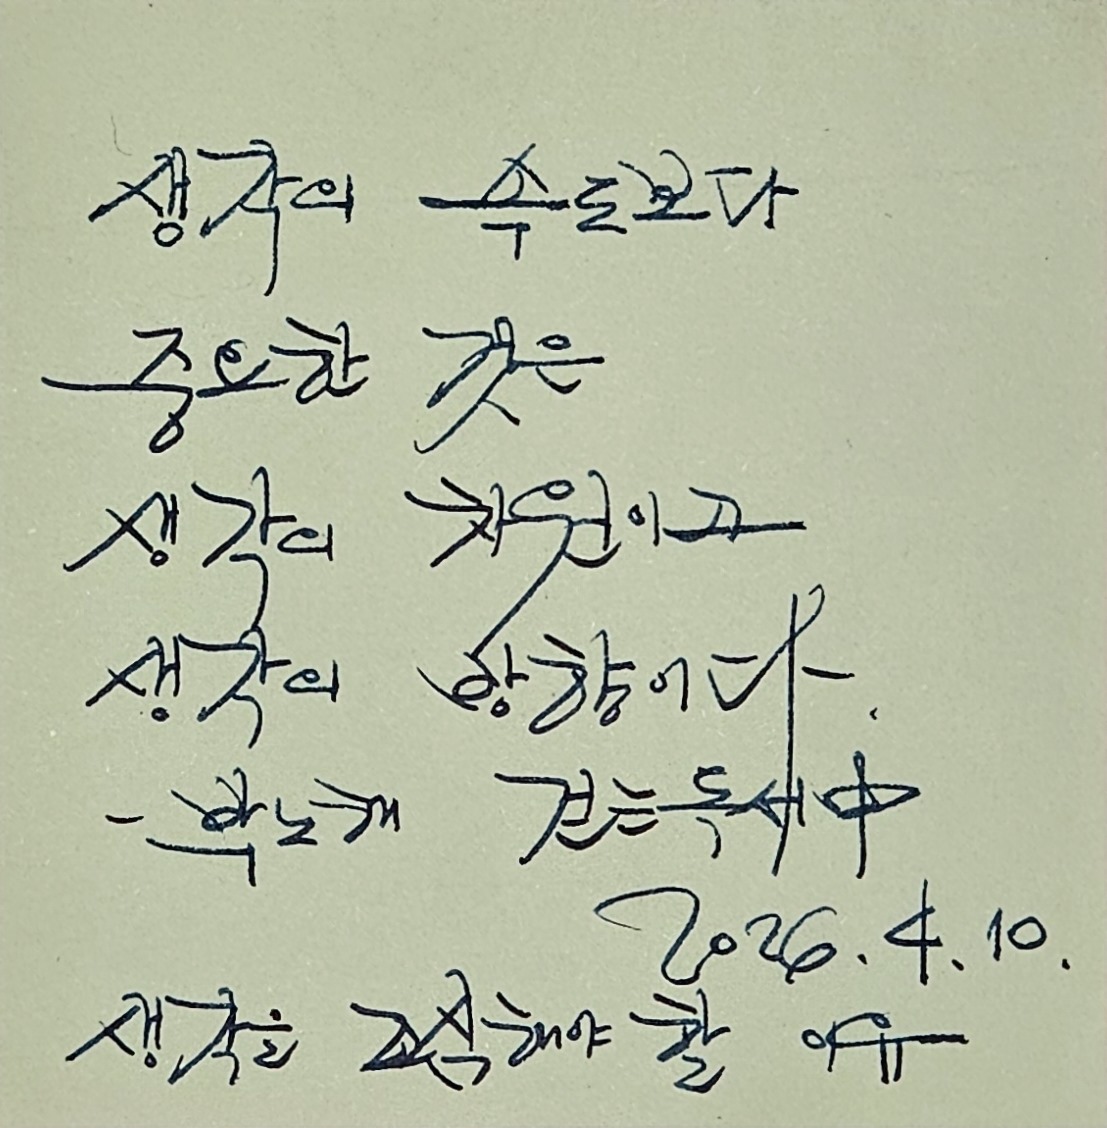 생각의 속도보다
중요한 것은
생각의 차원이고
생각의 방향이다.
- 박노해 걷는독서 中
2026. 4. 10.
생각을 할 이유